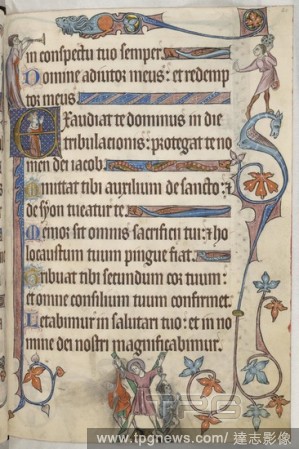 in conspectu tuo semper.
Domine adiutor meus: et redemp
tor meus.
Exaudiat te dominus in die
tribulacionis: protegat te no
men dei iacob.
Mittat tibi auxilium de sancto: ⁊
de syon tueatur te.
Memor sit omnis sacrificii tui: ⁊ ho
locaustum tuum pingue fiat.
Tribuat tibi secundum cor tuum:
et omne consilium tuum confirmet.
Letabimur in salutari tuo: et in no
mine dei nostri magnificabimur.
TPG
www.tpgnews.com / 達志影像